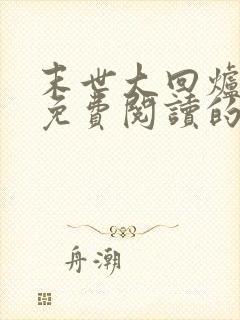 末世大回爐
免費閱讀的
舟潮